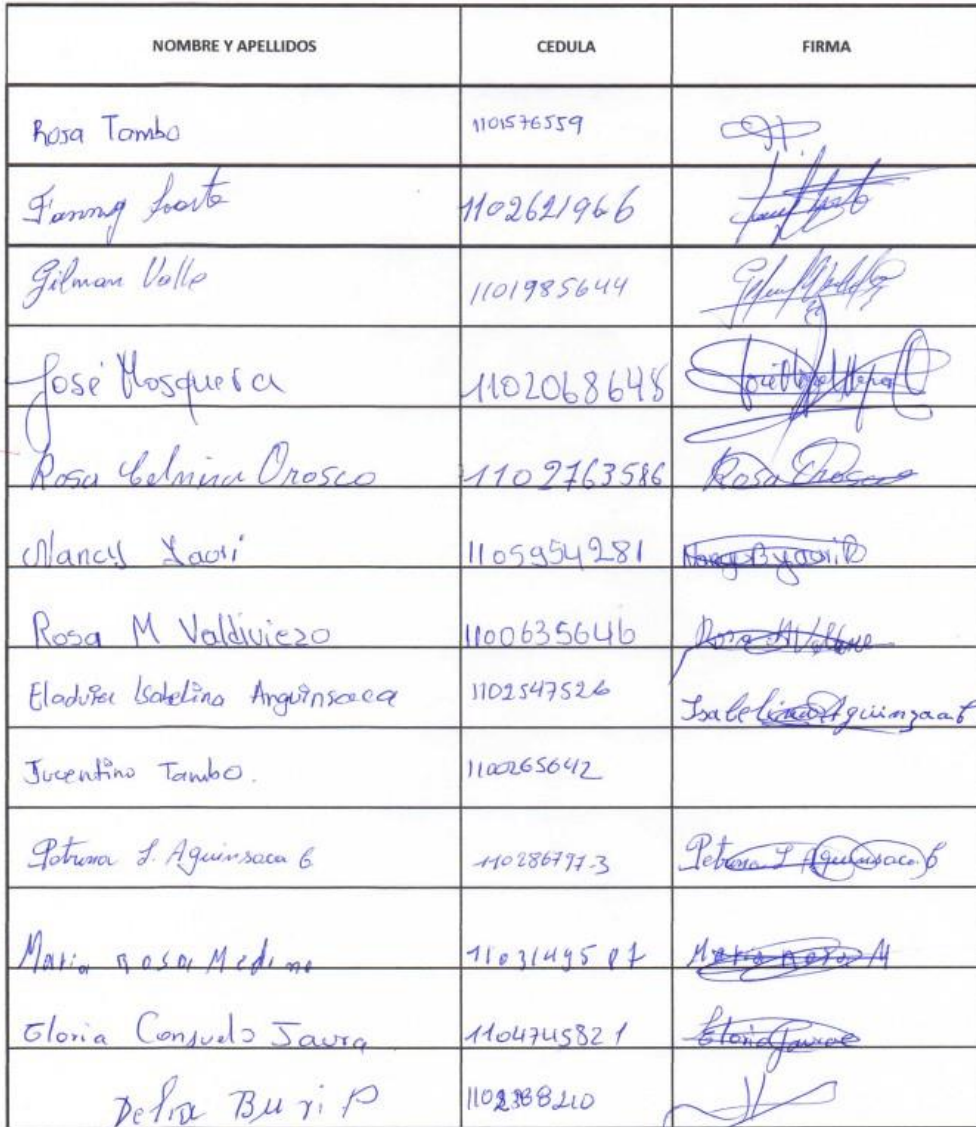 NOMBRE Y APELLIDOS CEDULA FIRMA
Rosa Tambo 1101576559
Fanny 1102621966
Gilman Valle 1101985644
José Mosquera 1102068648
Rosa Orosco 1102763586 Rosa Orosco
Nancy Yaori 1105954281
Rosa M Valdiviezo 1100635646
Isabelina Anguinsaca 1102547526 Isabelina
Jucentino Tambo. 1100265642
Petrona J. Aguinsaca G 110286797-3 Petrona J Aguinsaca G
Maria Rosa Medina Maria Rosa M
Gloria Consuelo Jaura 1104745821 Gloria
Delia Buri P